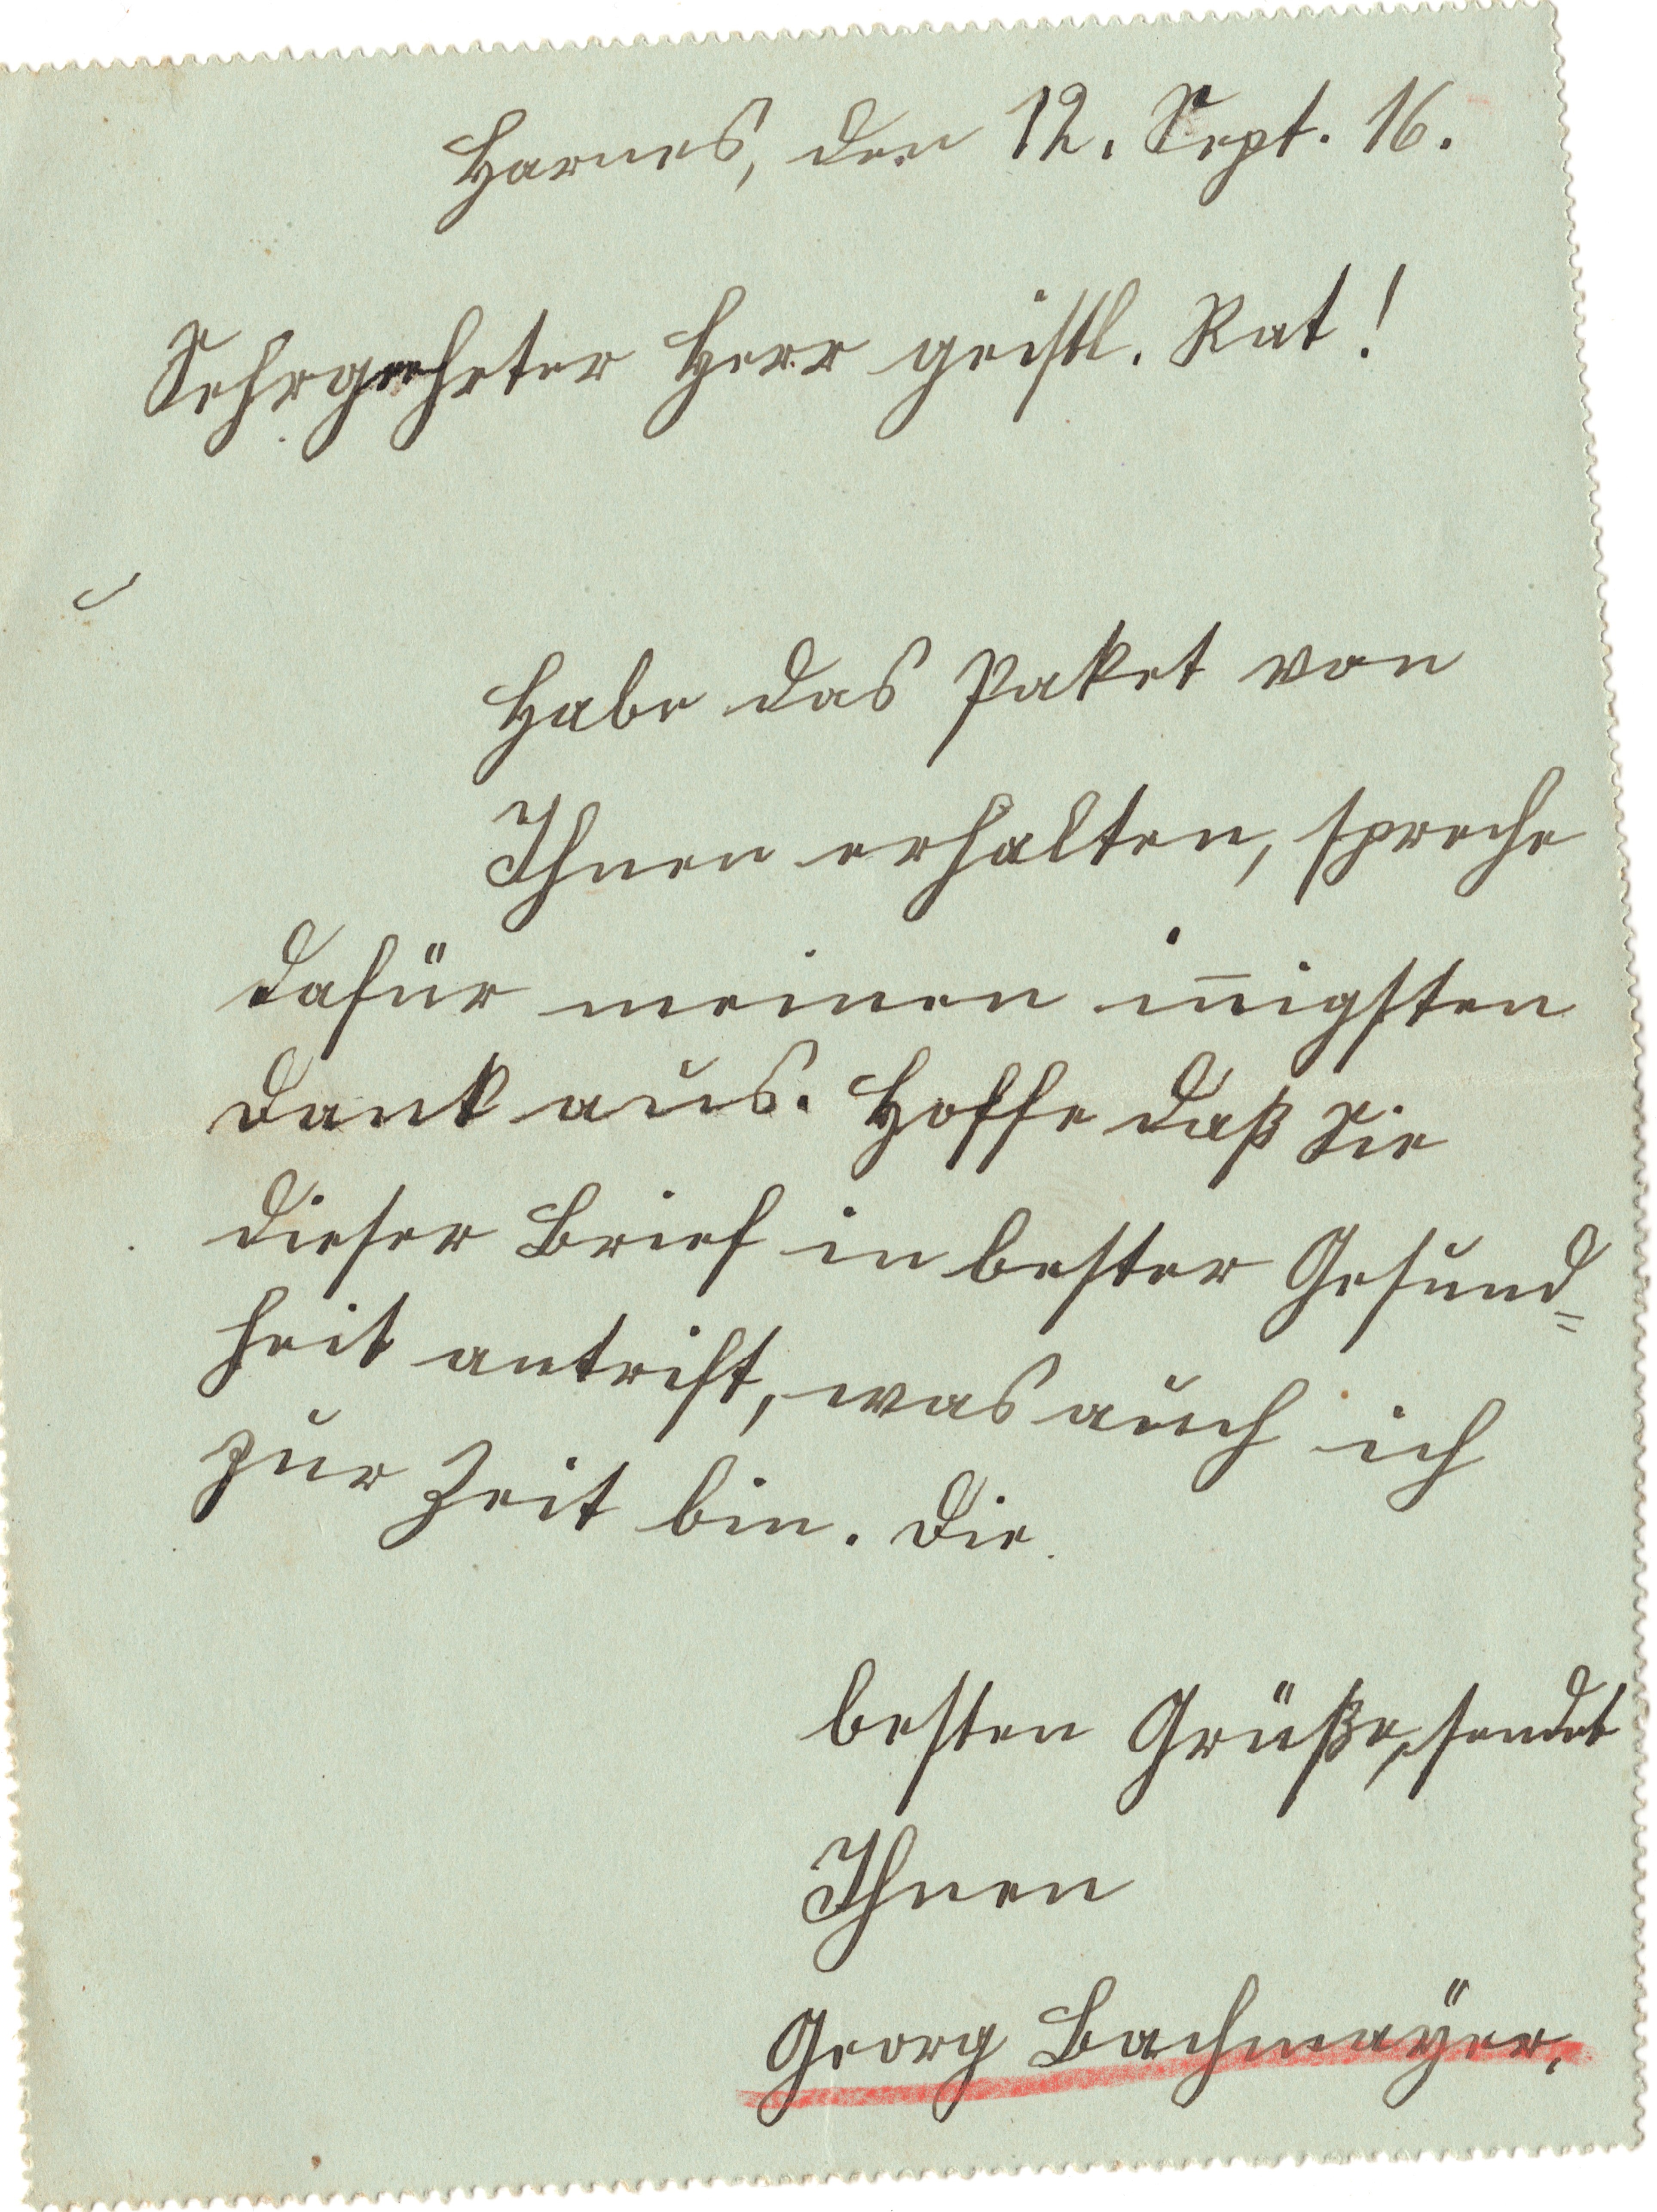 Harnes, den 12. Sept. 16.
Sehrgeehrter Herr geistl. Rat!
Habe das Paket von
Ihnen erhalten, spreche
dafür meinen in̄igsten
Dank aus. Hoffe daß Sie
dieser Brief in bester Gesund=
heit antrift, was auch ich
zur Zeit bin. Die
besten Grüße, sendet
Ihnen
Georg Bachmaÿer.